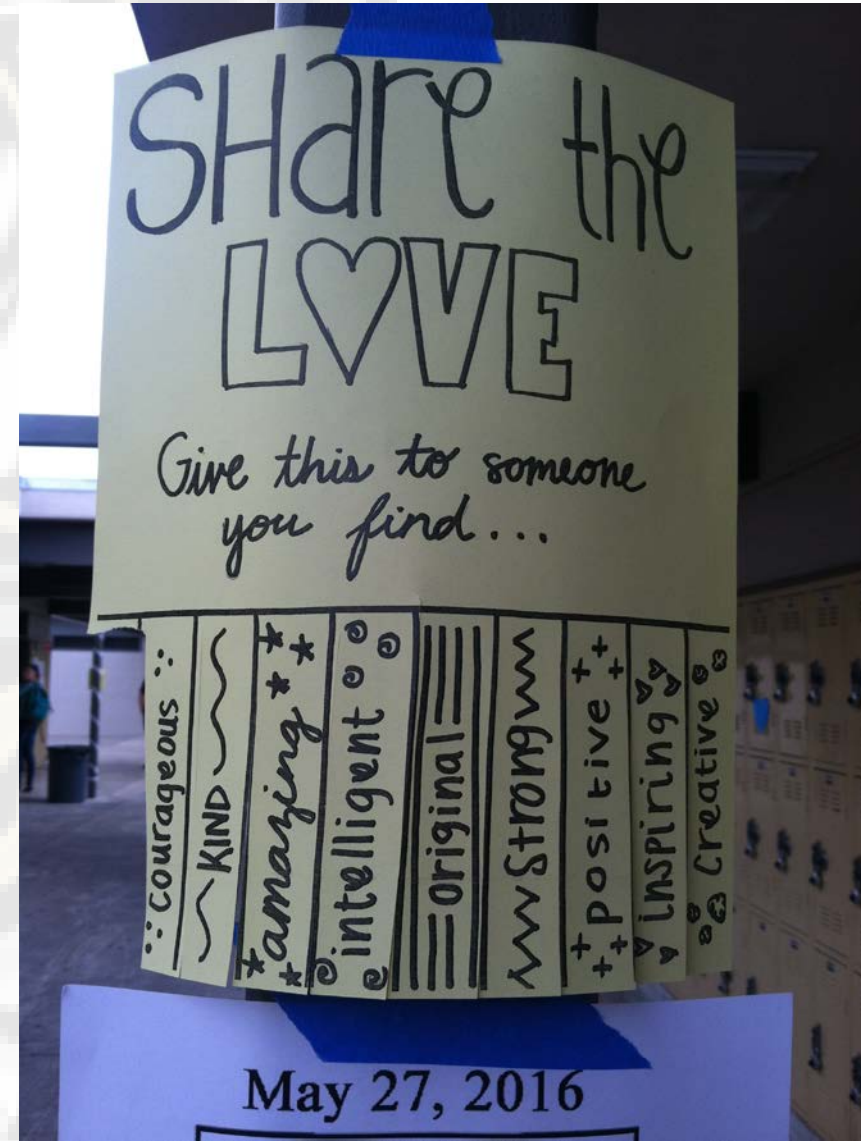 SHare the
LOVE
Give this to someone
you find...
courageous
KIND
amazing
intelligent
original
Strong
positive
inspiring
Creative
May 27, 2016